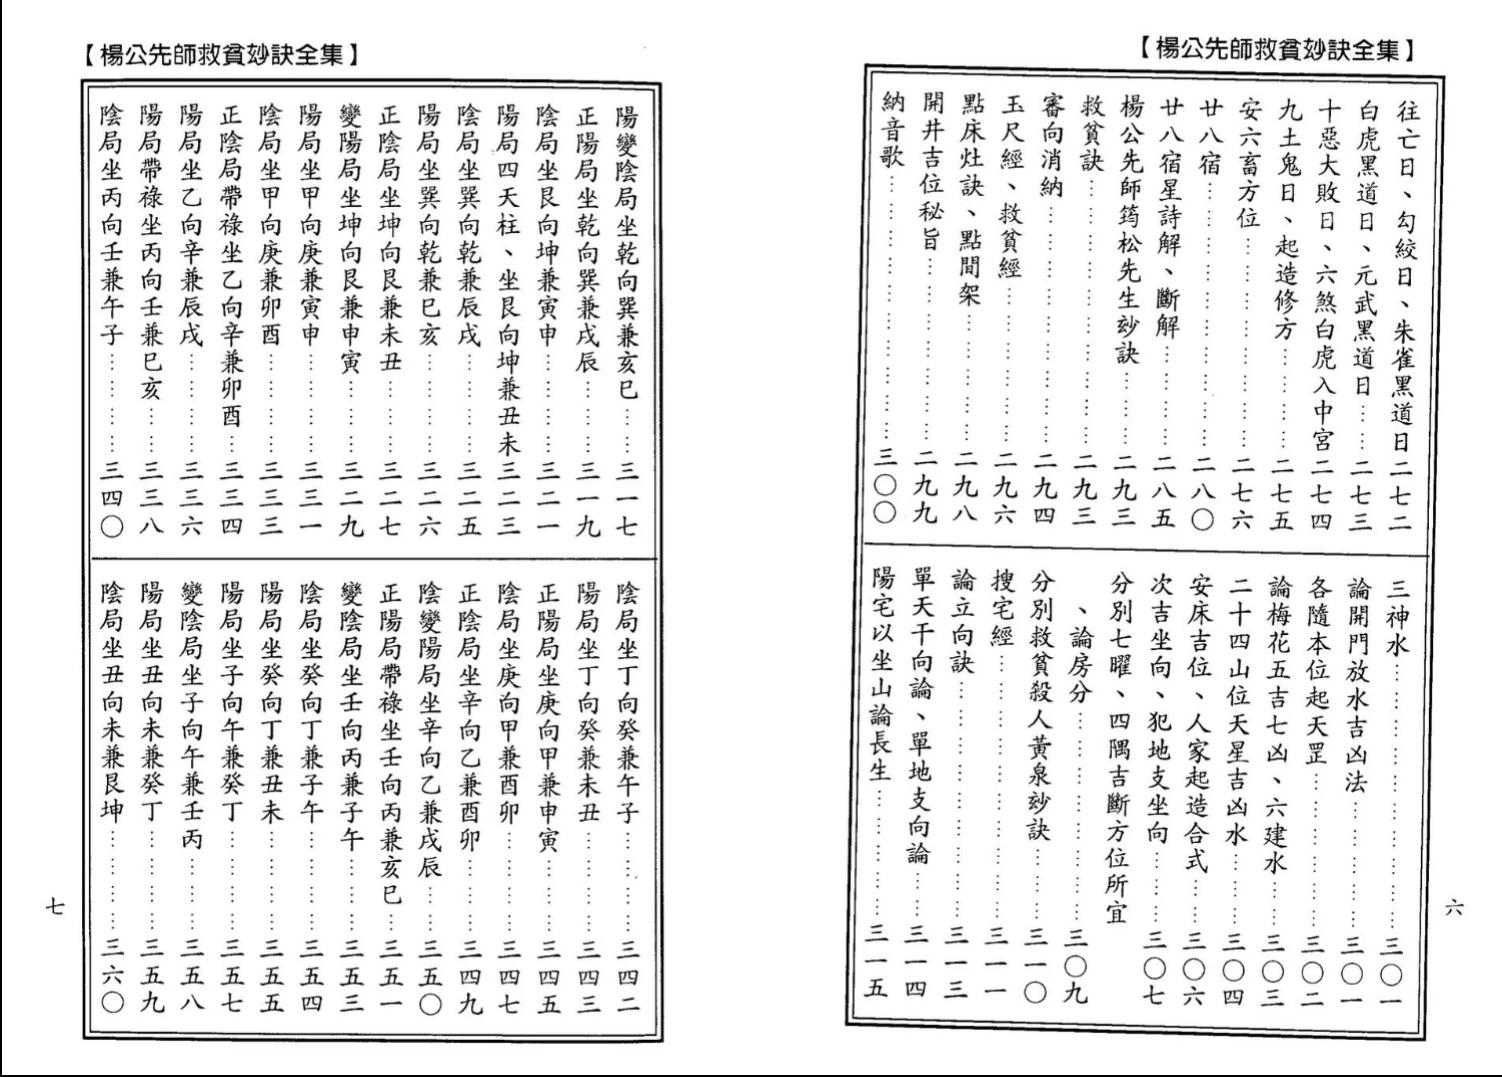 【楊公先師救貧玅訣全集】
往亡日、勾絞日、朱雀黑道日二七二
白虎黑道日、元武黑道日……二七三
十惡大敗日、六煞白虎入中宮二七四
九土鬼日、起造修方…………二七五
安六畜方位……………………二七六
廿八宿…………………………二八〇
廿八宿星詩解、斷解…………二八五
楊公先師筠松先生玅訣………二九三
救貧訣…………………………二九三
審向消納………………………二九四
玉尺經、救貧經………………二九六
點床灶訣、點間架……………二九八
開井吉位秘旨…………………二九九
納音歌…………………………三〇〇
三神水…………………………三〇一
論開門放水吉凶法……………三〇一
各隨本位起天罡………………三〇二
論梅花五吉七凶、六建水……三〇三
二十四山位天星吉凶水………三〇四
安床吉位、人家起造合式……三〇六
次吉坐向、犯地支坐向………三〇七
分別七曜、四隅吉斷方位所宜
、論房分………………………三〇九
分別救貧殺人黃泉玅訣………三一〇
搜宅經…………………………三一一
論立向訣………………………三一三
單天干向論、單地支向論……三一四
陽宅以坐山論長生……………三一五
六
【楊公先師救貧玅訣全集】
陽變陰局坐乾向巽兼亥巳……三一七
正陽局坐乾向巽兼戌辰………三一九
陰局坐艮向坤兼寅申…………三二一
陽局四天柱、坐艮向坤兼丑未三二三
陰局坐巽向乾兼辰戌…………三二五
陽局坐巽向乾兼巳亥…………三二六
正陰局坐坤向艮兼未丑………三二七
變陽局坐坤向艮兼申寅………三二九
陽局坐甲向庚兼寅申…………三三一
陰局坐甲向庚兼卯酉…………三三三
正陰局帶祿坐乙向辛兼卯酉…三三四
陽局坐乙向辛兼辰戌…………三三六
陽局帶祿坐丙向壬兼巳亥……三三八
陰局坐丙向壬兼午子…………三四〇
陰局坐丁向癸兼午子…………三四二
陽局坐丁向癸兼未丑…………三四三
正陽局坐庚向甲兼申寅………三四五
陰局坐庚向甲兼酉卯…………三四七
正陰局坐辛向乙兼酉卯………三四九
陰變陽局坐辛向乙兼戌辰……三五〇
正陽局帶祿坐壬向丙兼亥巳…三五一
變陰局坐壬向丙兼子午………三五三
陰局坐癸向丁兼子午…………三五四
陽局坐癸向丁兼丑未…………三五五
陽局坐子向午兼癸丁…………三五七
變陰局坐子向午兼壬丙………三五八
陽局坐丑向未兼癸丁…………三五九
陰局坐丑向未兼艮坤…………三六〇
七